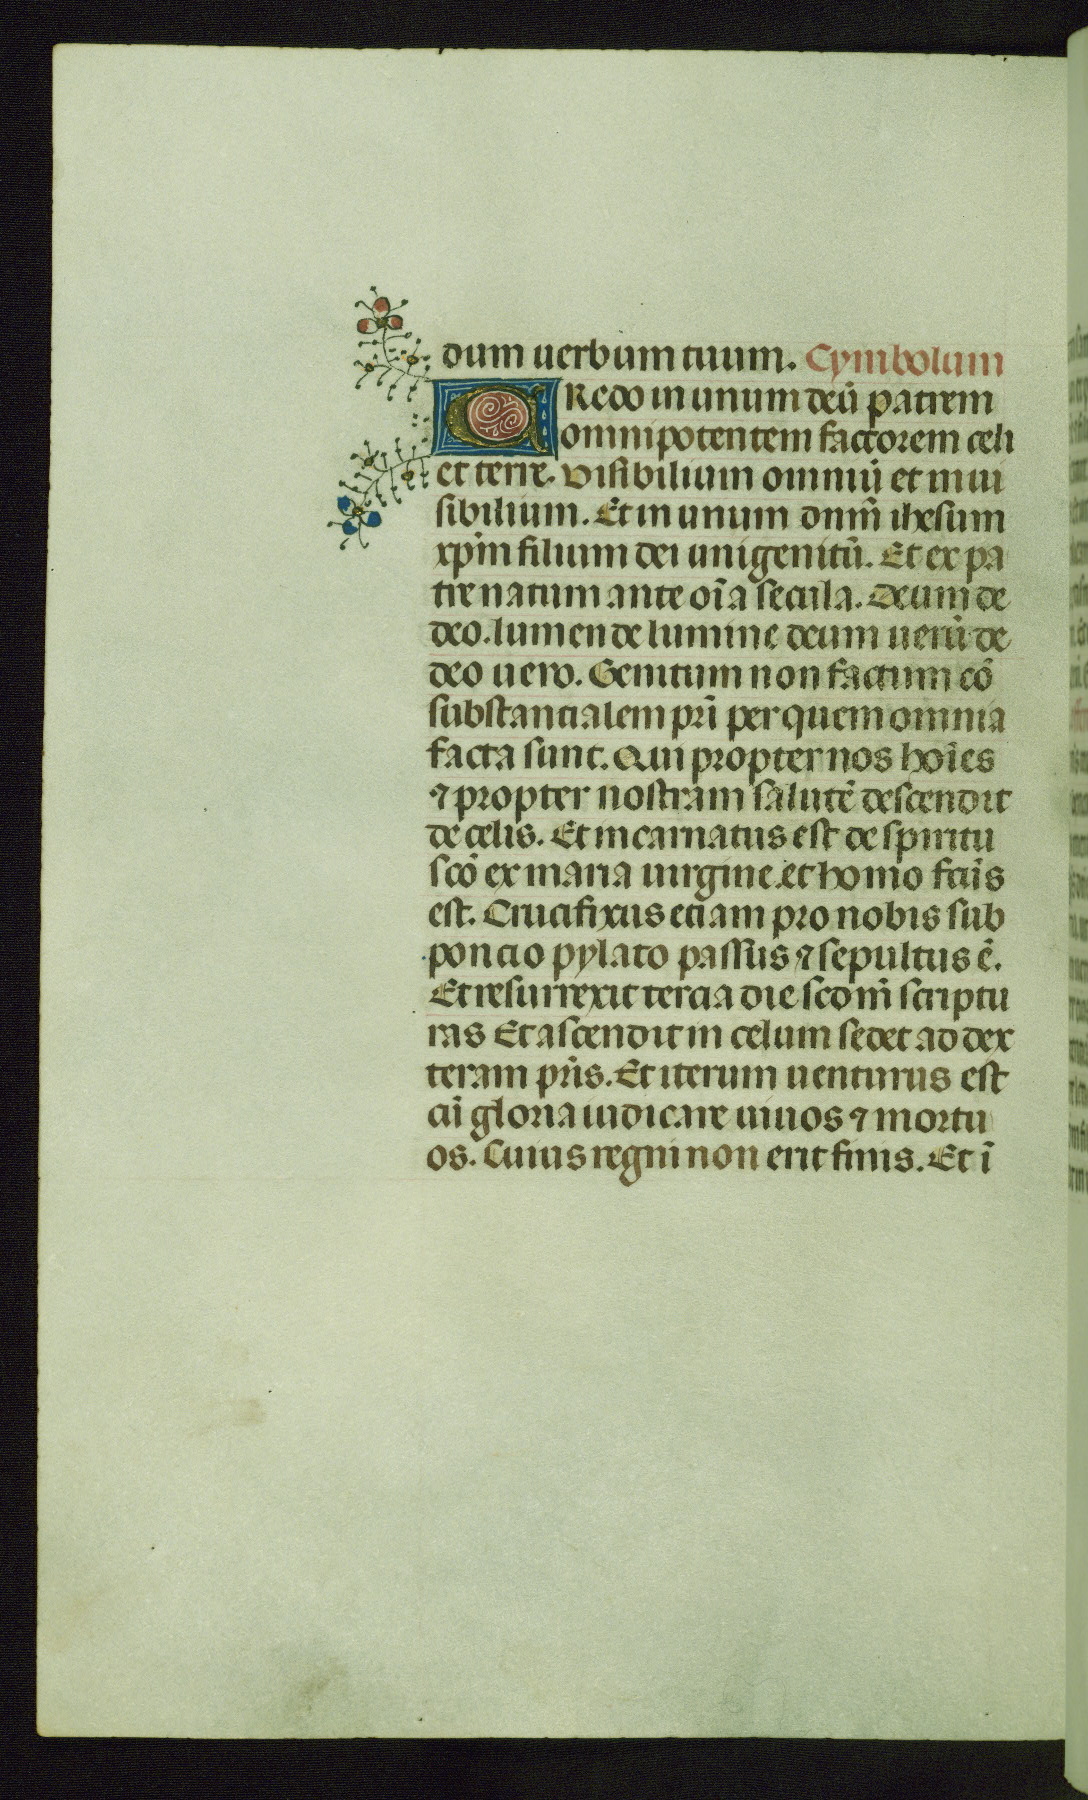 dum uerbum tuum. Cymbolum
CRedo in unum deū patrem
omnipotentem factorem celi
et terre. Visibilium omniū et inui
sibilium. Et in unum dnm̄ ihesum
xpm̄ filium dei unigenitū. Et ex pa
tre natum ante oīa secula. Deum de
deo. lumen de lumine deum uerū de
deo uero. Genitum non factum cō
substancialem pri̅ per quem omnia
facta sunt. Qui propter nos hoīes
⁊ propter nostram salutē descendit
de celis. Et incarnatus est de spiritu
scō ex maria uirgine. et homo fctu̅s
est. Crucifixus eciam pro nobis sub
poncio pylato passus ⁊ sepultus ē.
Et resurrexit tercia die scdm̄ scriptu
ras Et ascendit in celum sedet ad dex
teram pri̅s. Et iterum uenturus est
cū gloria iudicare uiuos ⁊ mortu
os. Cuius regni non erit finis. Et ī